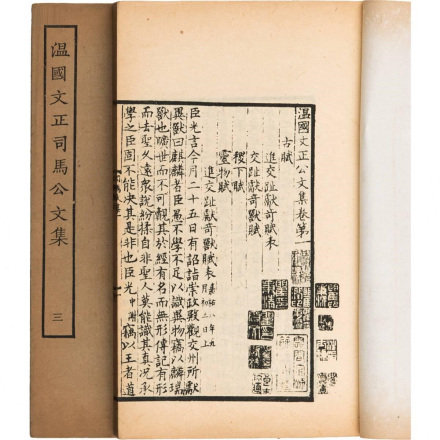 温國文正司馬公文集
三
温國文正公文集卷第一
古賦
進交趾獻奇獸賦表
交趾獻奇獸賦
稷下賦
靈物賦
進交趾獻奇獸賦表
臣光言今月二十五日有詔詣崇政殿觀交州所獻
異獸曰麒麟者臣愚不學不足以識異物竊以麟瑞
獸也曠世而不可覩其於經有名而無形傳記有形
而去聖久遠衆說紛揉自非聖人莫能識其真况承
學之臣固不能決其是非也臣光中謝竊以王者道